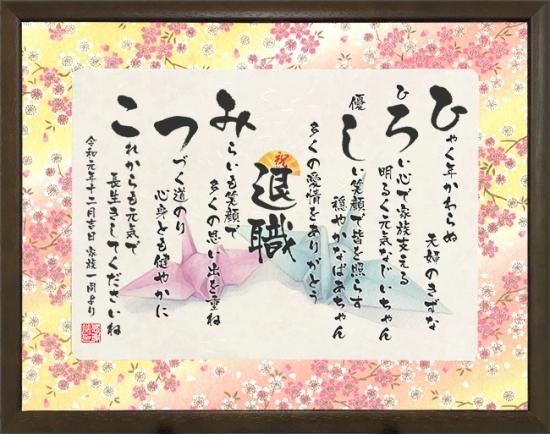 ひゃく年かわらぬ
夫婦のきずな
ひろい心で家族支える
明るく元気なじいちゃん
優しい笑顔で皆を照らす
穏やかなばあちゃん
多くの愛情をありがとう
祝
退職
みらいも笑顔で
多くの思い出を重ね
つづく道のり
心身とも健やかに
これからも元気で
長生きしてくださいね
令和元年十二月吉日 家族一同より